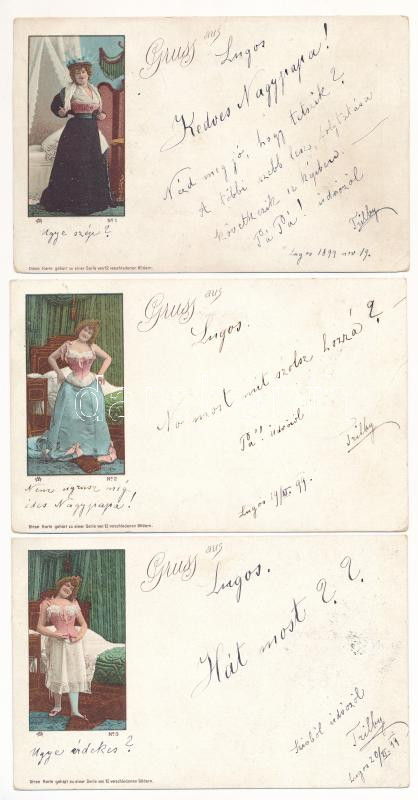 Gruss aus
Lugos
Kedves Nagypapa!
Nézd meg jó, hogy tetszik?
A többi szebb lesz, folytatása
következik 12 képben. —
Pá Pá! üdvözöl
Trilby
Lugos 1899 nov 19.
No 1
Ugye szép?
Diese Karte gehört zu einer Serie von 12 verschiedenen Bildern.
Gruss aus
Lugos.
No most mit szolsz hozzá?
Pá! üdvözöl
Trilby
Lugos 19/XI. 99.
No 2
Nem ugrasz még
édes Nagypapa!
Diese Karte gehört zu einer Serie von 12 verschiedenen Bildern.
Gruss aus
Lugos.
Hát most?.?.
üdvözöl
Trilby
Lugos 20/XI 99
No 3
Ugye érdekes?
Diese Karte gehört zu einer Serie von 12 verschiedenen Bildern.